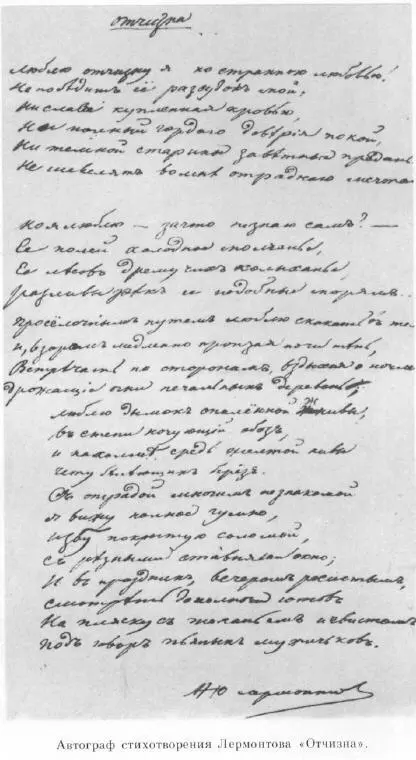 Отчизна
Люблю отчизну я но странною любовью!
Не победитъ её разсудокъ мой,
Ни слава купленная кровью,
Ни полный гордаго довѣрія покой,
Ни темной старины завѣтныя предань
Не шевелятъ во мнѣ отраднаго мечта
Но я люблю — за что не знаю самъ? —
Ее полей холодное молчанье,
Ее лѣсовъ дремучихъ колыханье,
Разливы рѣкъ ее подобные морямъ...
Просёлочнымъ путемъ люблю скакать въ те
И, взоромъ медленно пронзая ночи тѣнь,
Встрѣчать по сторонамъ, вздыхая о ночле
Дрожащіе огни печальныхъ деревень;
Люблю дымокъ спалённой жнивы,
Въ степи кочующій обозъ,
И на холмѣ средь желтой нивы
Чету бѣлѣющихъ берёзъ.
Съ отрадой многимъ незнакомой
Я вижу полное гумно,
Избу покрытую соломой,
Съ рѣзными ставнями окно;
И въ праздникъ, вечеромъ росистымъ,
Смотрѣть до полночи готовъ
На пляску съ топаньемъ и свистомъ
Подъ говоръ пьяныхъ мужичковъ.
М Ю Лермонтов
Автограф стихотворения Лермонтова «Отчизна».